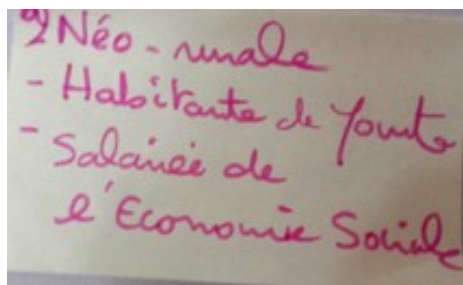 Néo-rurale
- Habitante de
- Salariée de
l'Economie Sociale